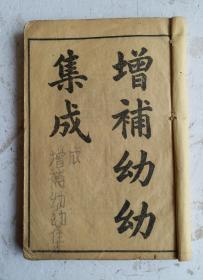 增補幼幼
集成
成
增補幼幼集